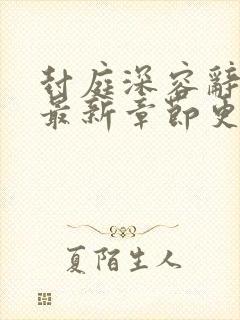 封庭深容辭
最新章節史
夏陌生人